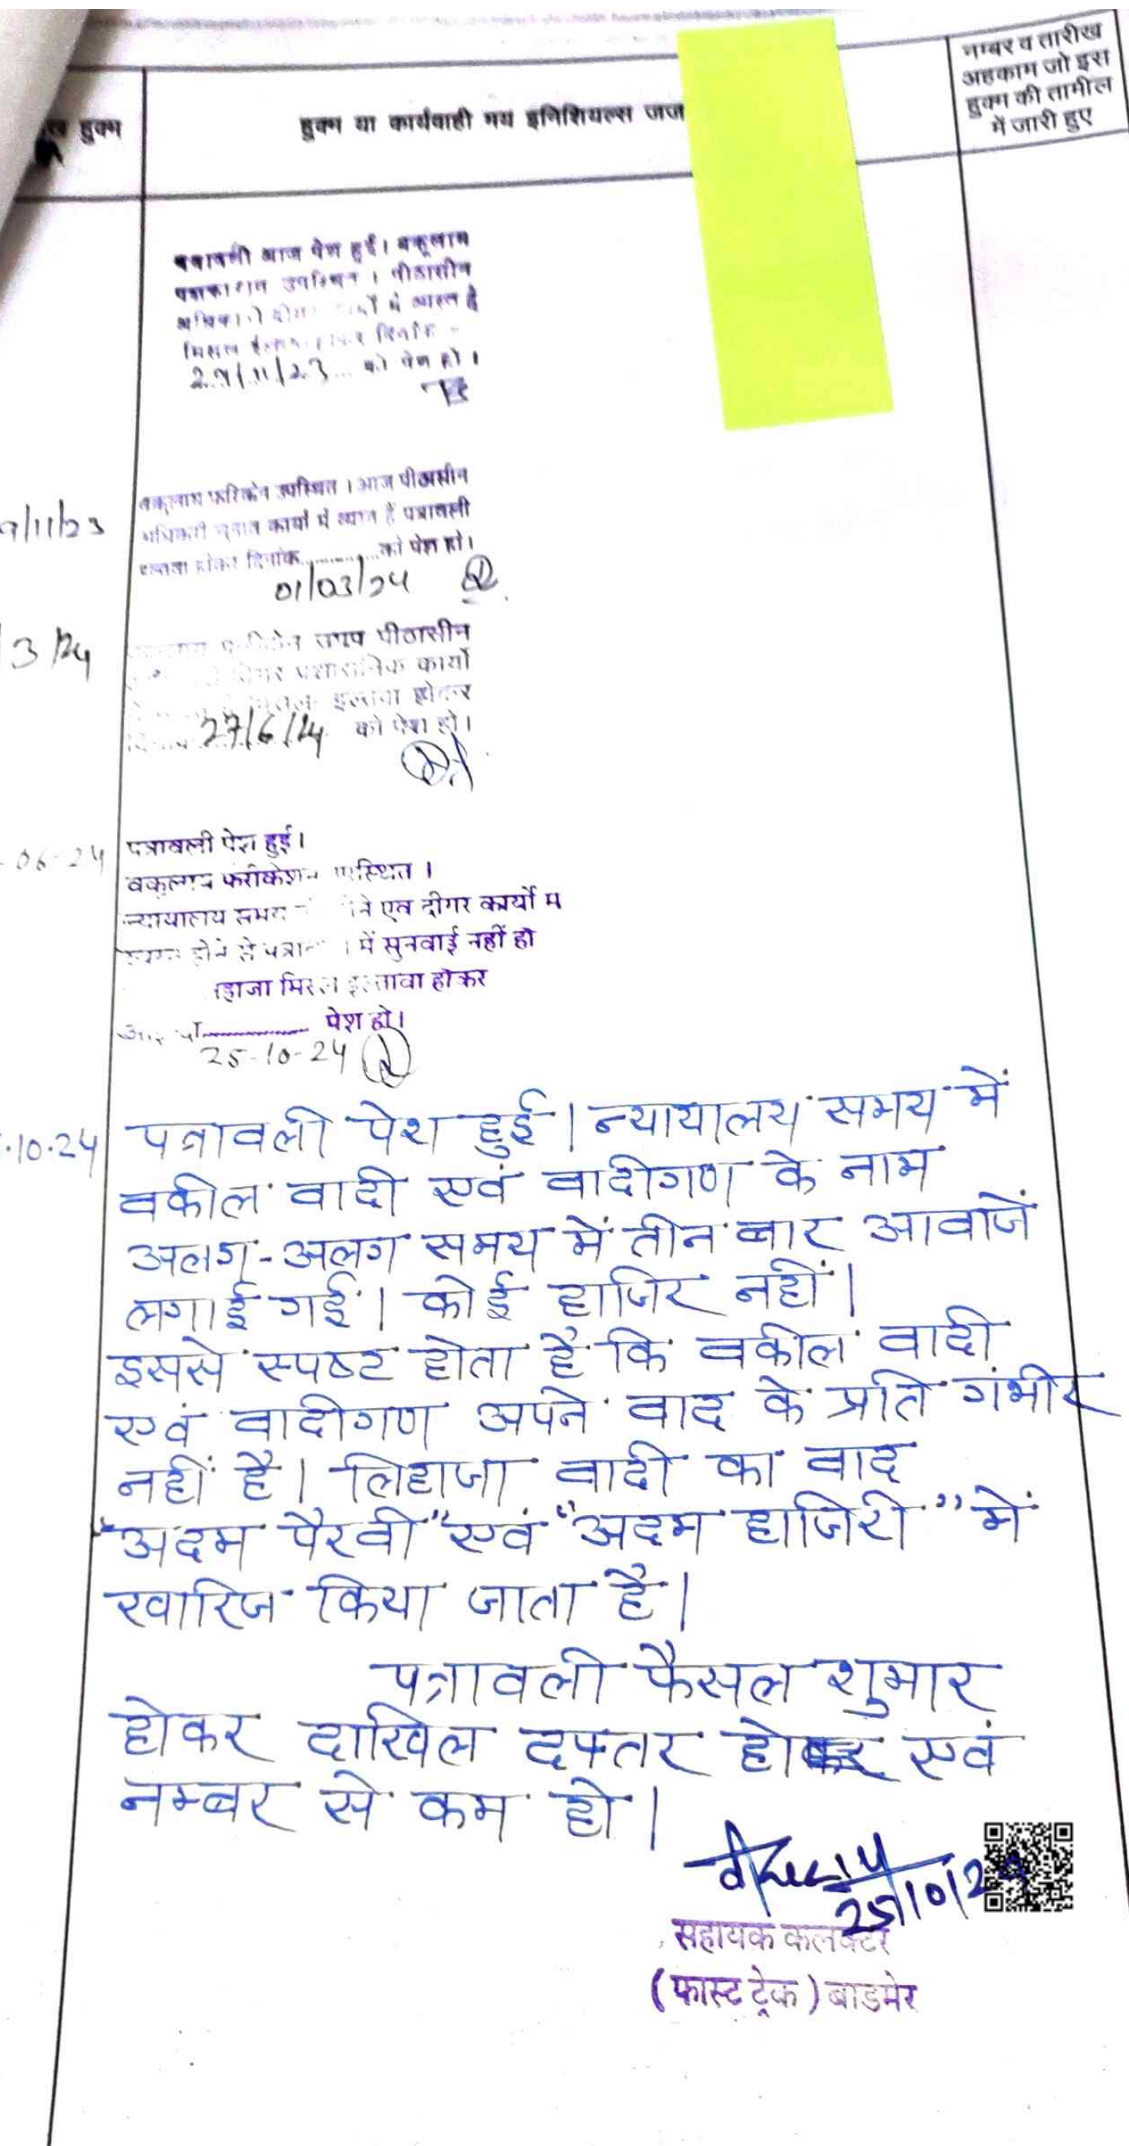 हुक्म
हुक्म या कार्यवाही मय इनिशियल्स जज
नम्बर व तारीख
अहकाम जो इस
हुक्म की तामील
में जारी हुए
पत्रावली आज पेश हुई। वकूलाय
उपस्थित । पीठासीन
में व्यस्त है
मिसल दिनांक
29/11/23 को पेश हो।
9/11/23
वकूलाय फरिकेन उपस्थित । आज पीठासीन
अधिकारी चुनाव कार्यो में व्यस्त हैं पत्रावली
होकर दिनांक............को पेश हो।
01/03/24
3/24
पीठासीन
कार्यो
इल्तवा होकर
27/6/24 को पेश हो।
06-24
पत्रावली पेश हुई।
वकुलाय फरीकेशन
न्यायालय समय एवं दीगर कार्यो में
होने से में सुनवाई नहीं हो
इल्तवा होकर
पेश हो।
25-10-24
.10.24
पत्रावली पेश हुई। न्यायालय समय में
वकील वादी एवं वादीगण के नाम
अलग-अलग समय में तीन बार आवाजें
लगाई गई। कोई हाजिर नहीं।
इससे स्पष्ट होता है कि वकील वादी
एवं वादीगण अपने वाद के प्रति गंभीर
नहीं है। लिहाजा वादी का वाद
"अदम पैरवी" एवं "अदम हाजिरी" में
खारिज किया जाता है।
पत्रावली फैसल शुमार
होकर दाखिल दफ्तर हो एवं
नम्बर से कम हो।
25/10/24
सहायक कलक्टर
(फास्ट ट्रेक) बाडमेर